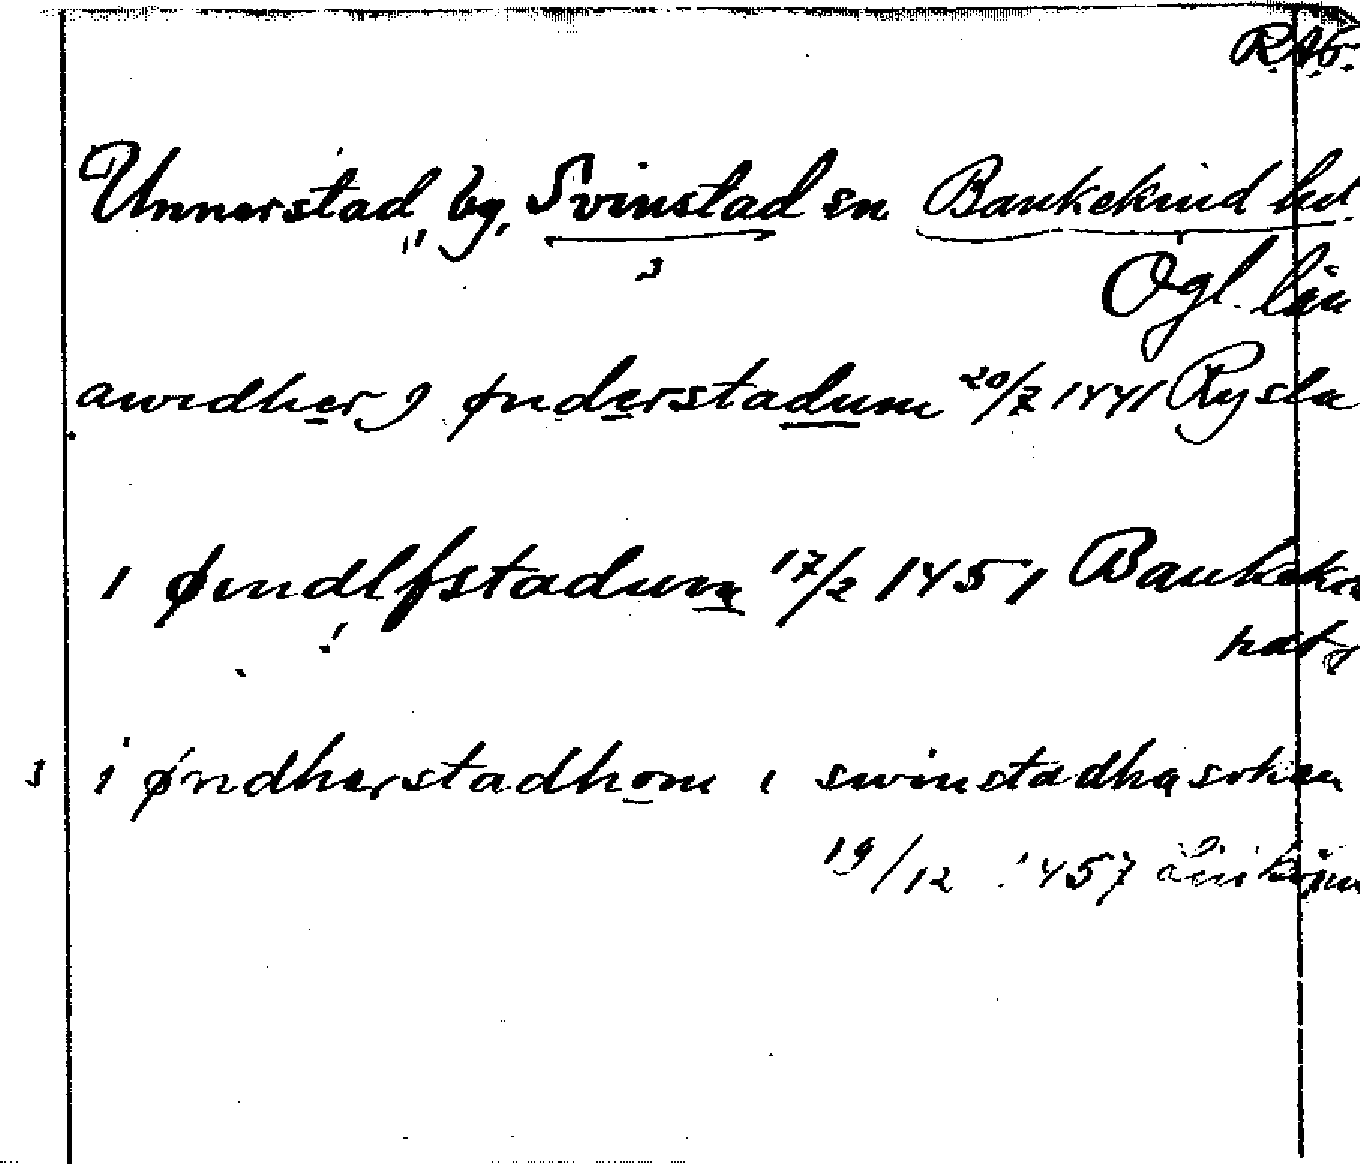 RAÖ.
Unnerstad by, Svinstad sn Bankekind hd
3
Ögl. län
awidher J ønderstadum 20/2 1441 Rysta
1 øndlfstadum 17/2 1451 Bankek
3 i øndherstadhom i swinstadha sokan
19/12 1457 Linköpin